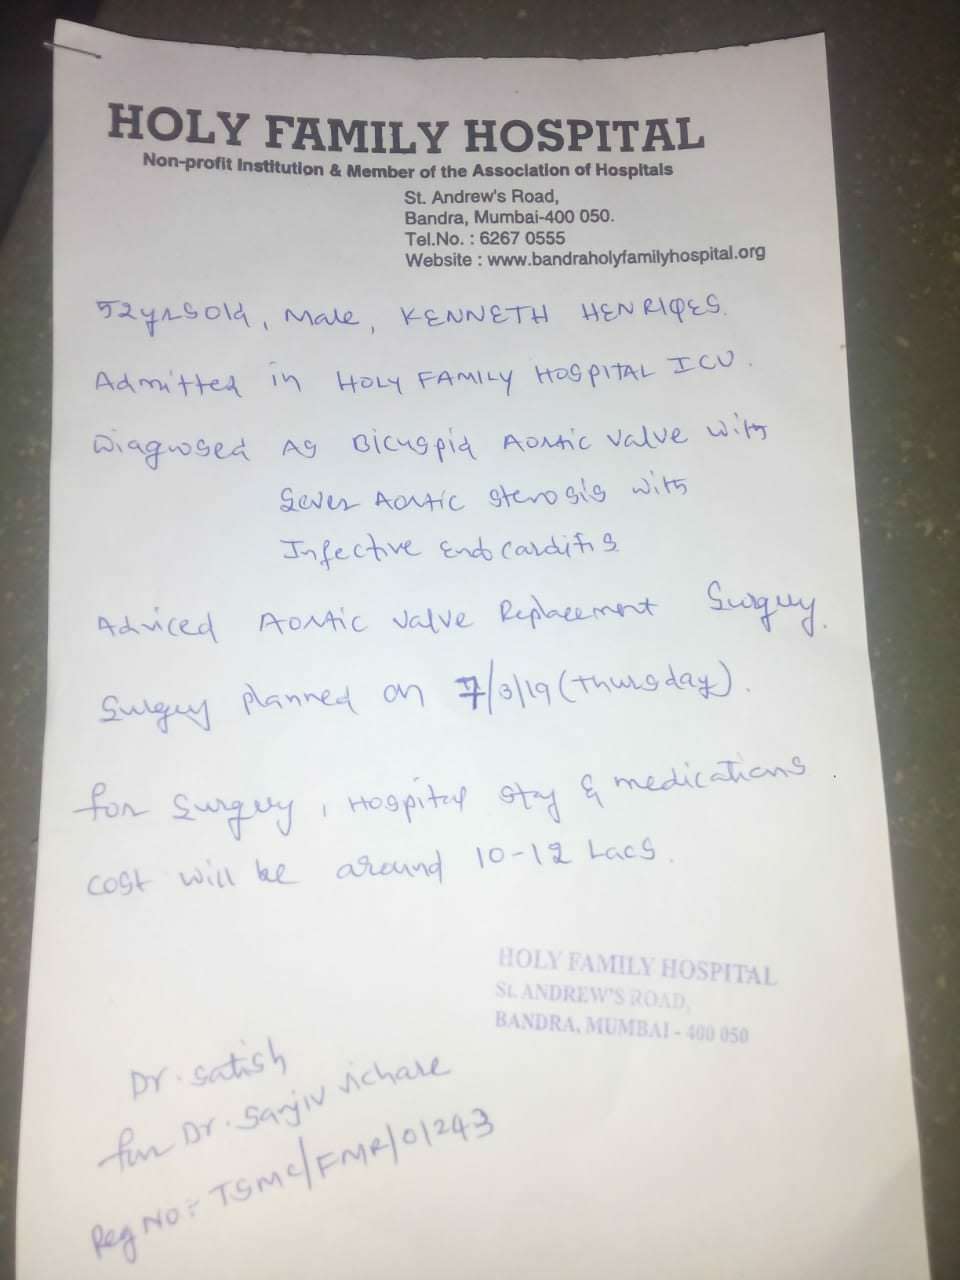 HOLY FAMILY HOSPITAL
Non-profit Institution & Member of the Association of Hospitals
St. Andrew's Road,
Bandra, Mumbai-400 050.
Tel.No. : 6267 0555
Website : www.bandraholyfamilyhospital.org
52yrs old, Male, KENNETH HENRIQES.
Admitted in HOLY FAMILY HOSPITAL ICU.
Diagnosed As Bicuspid Aortic valve with
Sever Aortic stenosis with
Infective Endocarditis
Adviced Aortic valve Replacement Surgery.
Surgery planned on 7/3/19 (Thursday).
for surgery, Hospital stay & medications
cost will be around 10-12 Lacs.
HOLY FAMILY HOSPITAL
St. ANDREW'S ROAD,
BANDRA, MUMBAI - 400 050
Dr. Satish
for Dr. Sanjiv Vichare
Reg No: TSMC/FMR/01243